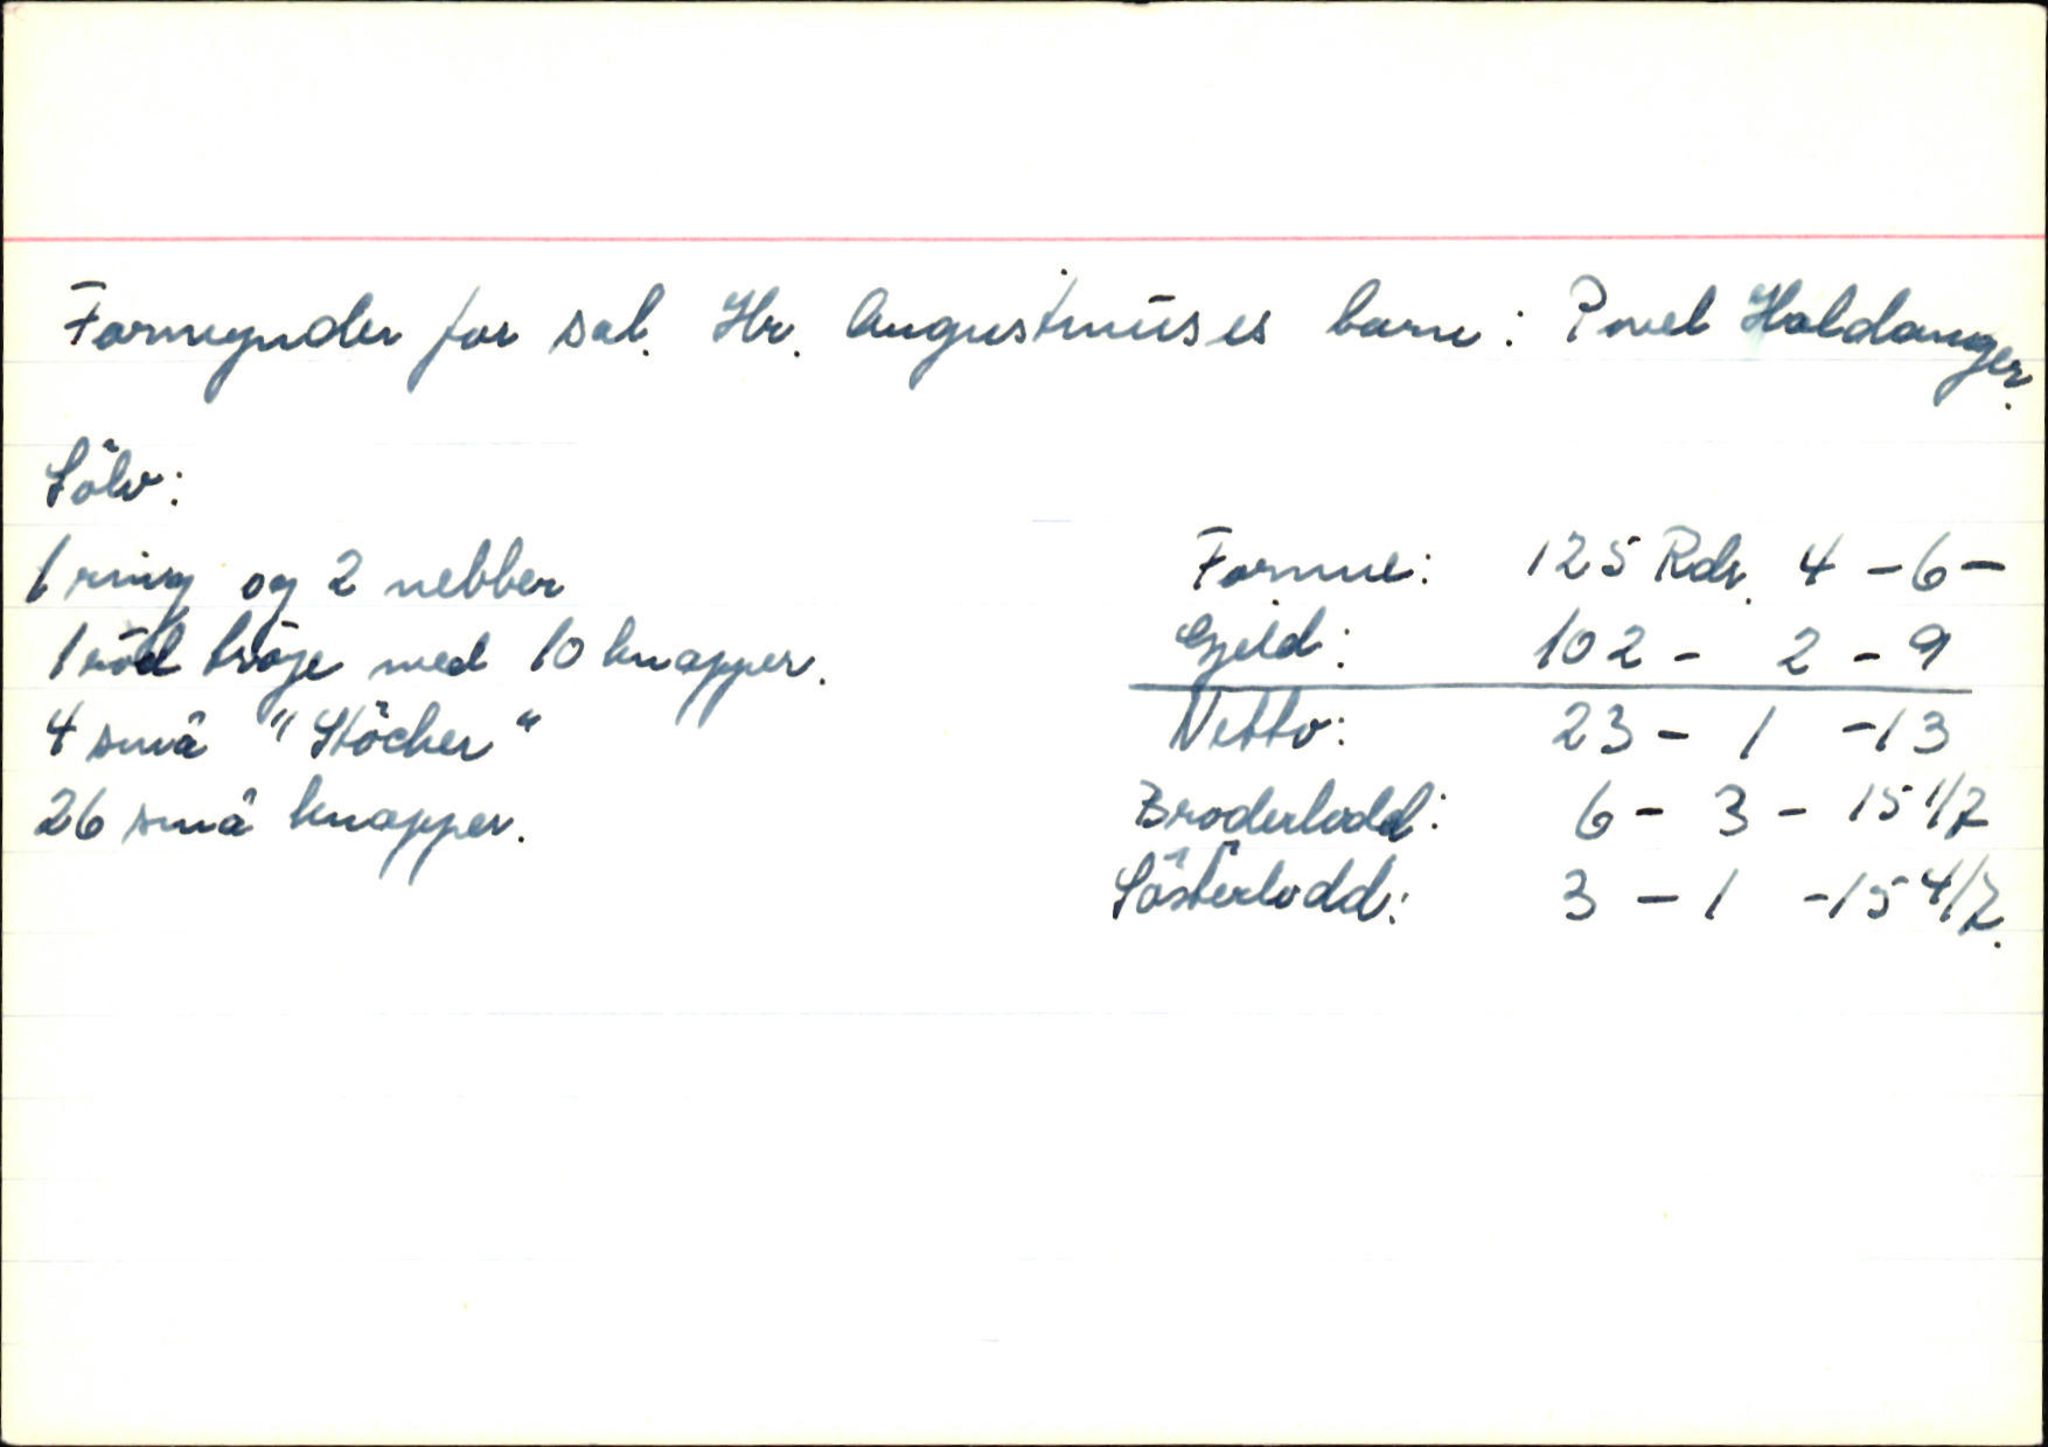 Formynder for sal. Hr. Augustinuses barn: Povel Holdanger.
Sölv:
1 ring og 2 nebber
1 röd tröje med 10 knapper.
4 små "Stöcher"
26 små knapper.
Formue: 125 Rdr. 4 - 6 -
Gjeld: 102 - 2 - 9
Netto: 23 - 1 - 13
Broderlodd: 6 - 3 - 15 1/7
Sösterlodd: 3 - 1 - 15 4/7.